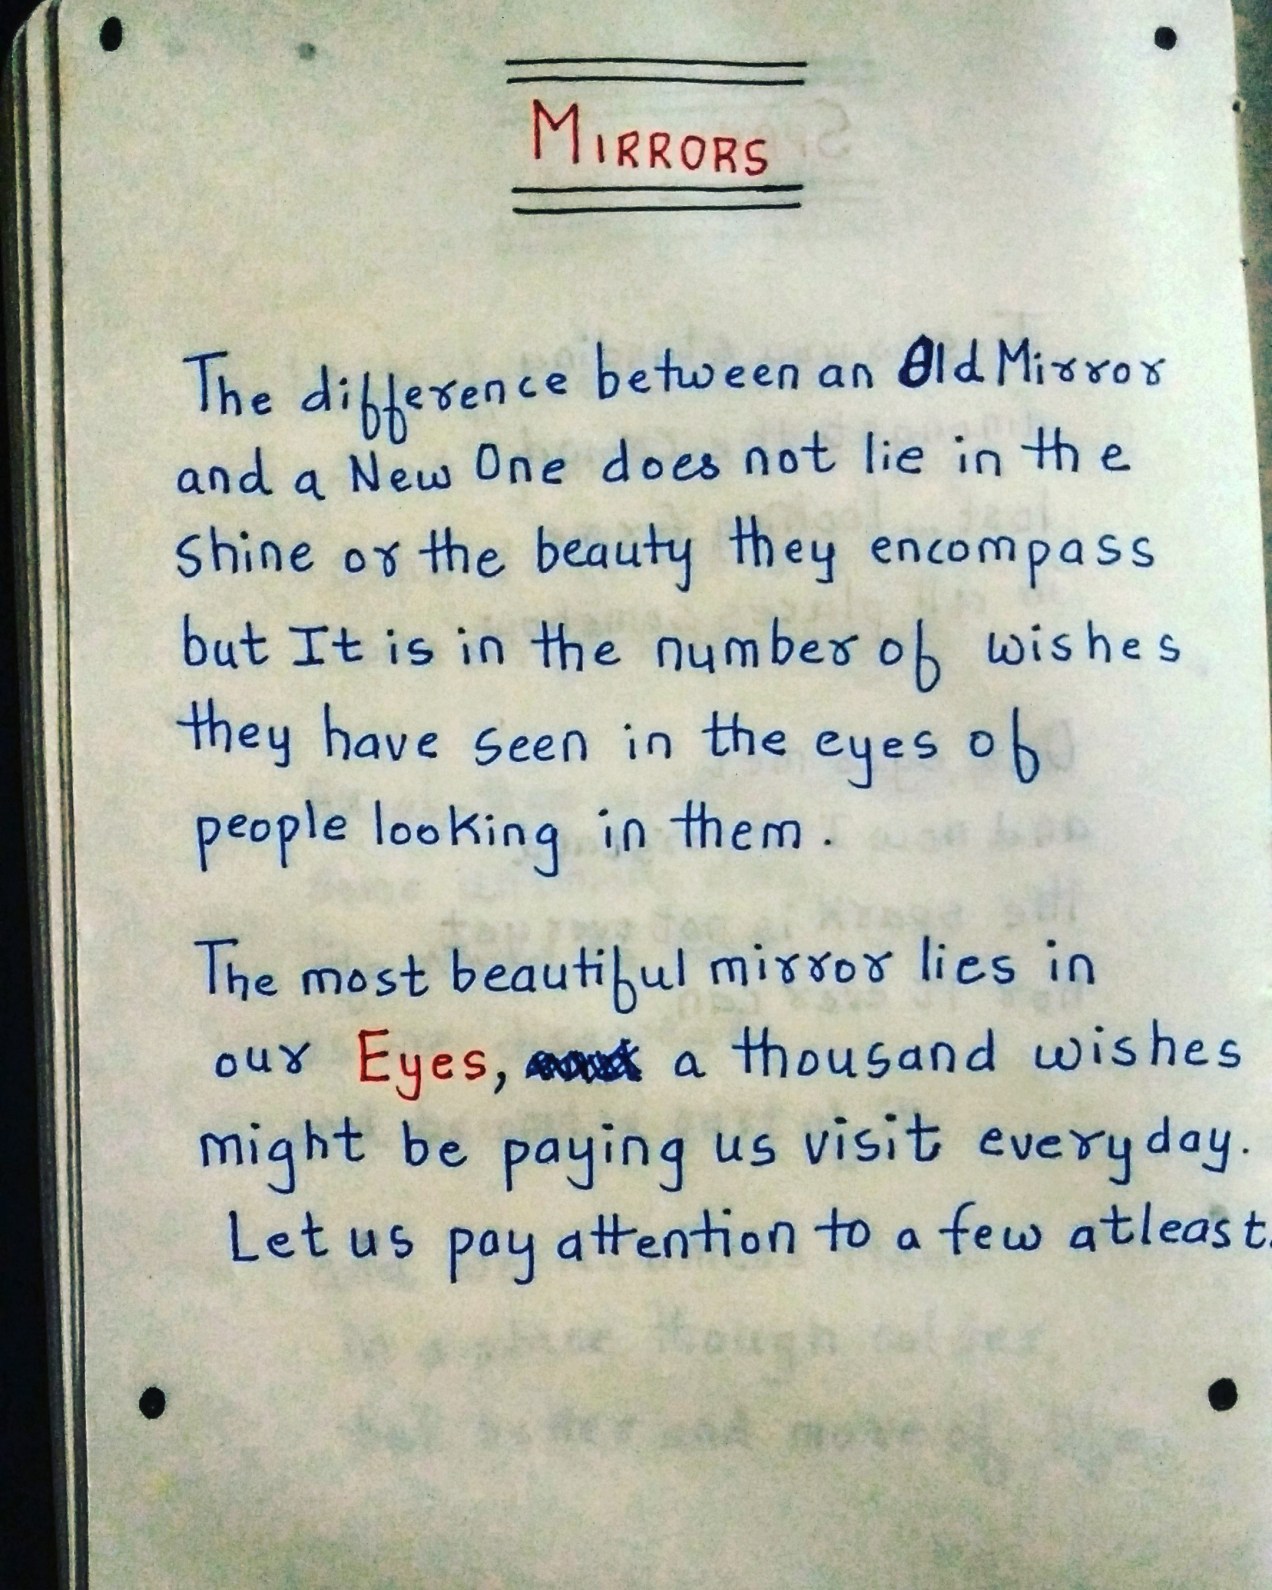 MIRRORS
The difference between an Old Mirror
and a New One does not lie in the
shine or the beauty they encompass
but It is in the number of wishes
they have seen in the eyes of
people looking in them.
The most beautiful mirror lies in
our Eyes, a thousand wishes
might be paying us visit everyday.
Let us pay attention to a few atleast.